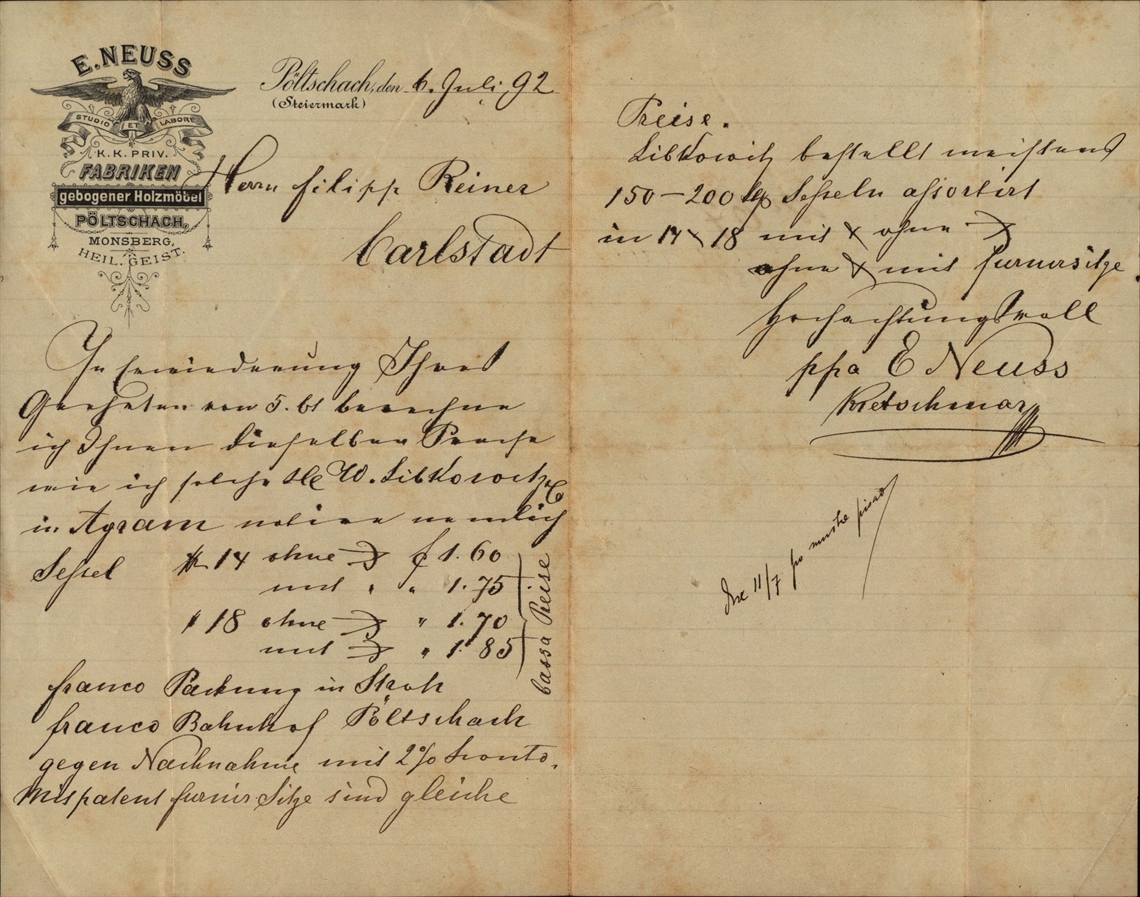 E. NEUSS
STUDIO ET LABORE
K. K. PRIV.
FABRIKEN
gebogener Holzmöbel
PÖLTSCHACH,
MONSBERG,
HEIL. GEIST.
Pöltschach, den 6. Juli 92
(Steiermark)
Herrn Filipp Reiner
Carlstadt
In Erwiederung Ihres
Geehrten vom 5. ds berechne
ich Ihnen dieselben Preise
wie ich solche W. Libkowitz
in Agram notire nemlich
Sessel 14 ohne f 1.60
mit " " 1.75
18 ohne " 1.70
mit " 1.85
Cassa Preise
franco Packung in Stroh
franco Bahnhof Pöltschach
gegen Nachnahme mit 2% Sconto.
Mit patent furnir Sitze sind gleiche
Preise.
Libkowitz bestellt meistens
150 – 200 Sesseln assortirt
in 14 18 mit & ohne
ohne & mit furnirsitze
Hochachtungsvoll
ppa E Neuss
Kretschmar
11/7